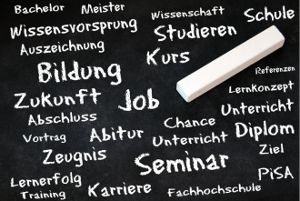 Bachelor Meister Wissenschaft Schule
Wissensvorsprung Studieren
Auszeichnung Kurs
Bildung Referenzen
Zukunft Job Lernkonzept
Abschluss Chance Unterricht
Vortrag Abitur Unterricht Diplom
Zeugnis Seminar Ziel
Lernerfolg PiSA
Training Karriere Fachhochschule